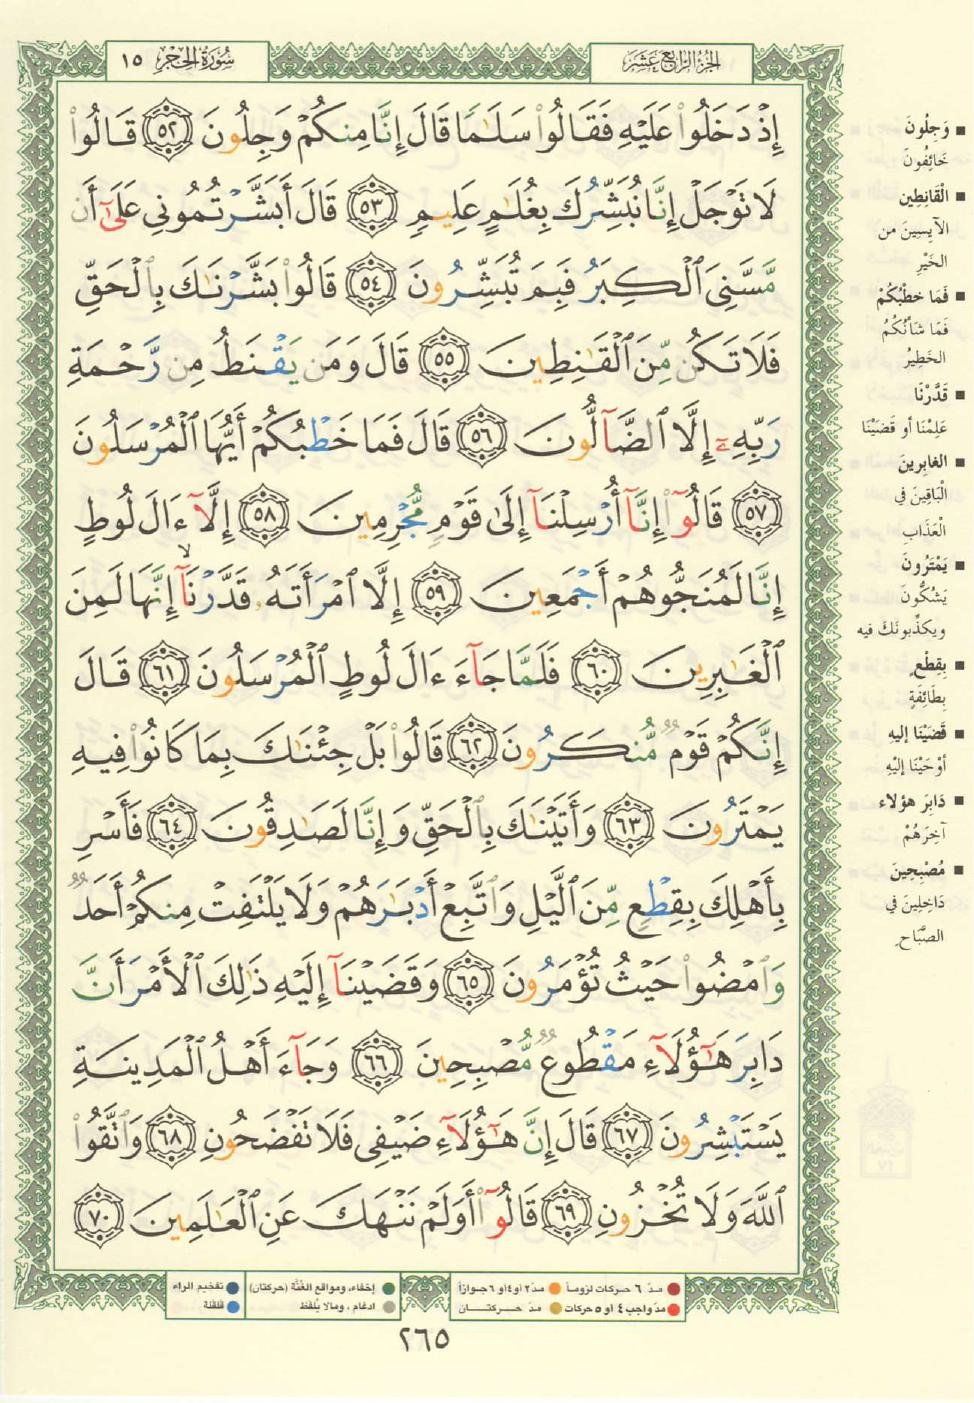 الجزء الرابع عشر
سورة الحجر ١٥
إِذْ دَخَلُوا۟ عَلَيْهِ فَقَالُوا۟ سَلَـٰمًا قَالَ إِنَّا مِنكُمْ وَجِلُونَ ٥٢ قَالُوا۟
لَا تَوْجَلْ إِنَّا نُبَشِّرُكَ بِغُلَـٰمٍ عَلِيمٍ ٥٣ قَالَ أَبَشَّرْتُمُونِى عَلَىٰٓ أَن
مَّسَّنِىَ ٱلْكِبَرُ فَبِمَ تُبَشِّرُونَ ٥٤ قَالُوا۟ بَشَّرْنَـٰكَ بِٱلْحَقِّ
فَلَا تَكُن مِّنَ ٱلْقَـٰنِطِينَ ٥٥ قَالَ وَمَن يَقْنَطُ مِن رَّحْمَةِ
رَبِّهِۦٓ إِلَّا ٱلضَّآلُّونَ ٥٦ قَالَ فَمَا خَطْبُكُمْ أَيُّهَا ٱلْمُرْسَلُونَ
٥٧ قَالُوٓا۟ إِنَّآ أُرْسِلْنَآ إِلَىٰ قَوْمٍ مُّجْرِمِينَ ٥٨ إِلَّآ ءَالَ لُوطٍ
إِنَّا لَمُنَجُّوهُمْ أَجْمَعِينَ ٥٩ إِلَّا ٱمْرَأَتَهُۥ قَدَّرْنَآ ۙ إِنَّهَا لَمِنَ
ٱلْغَـٰبِرِينَ ٦٠ فَلَمَّا جَآءَ ءَالَ لُوطٍ ٱلْمُرْسَلُونَ ٦١ قَالَ
إِنَّكُمْ قَوْمٌ مُّنكَرُونَ ٦٢ قَالُوا۟ بَلْ جِئْنَـٰكَ بِمَا كَانُوا۟ فِيهِ
يَمْتَرُونَ ٦٣ وَأَتَيْنَـٰكَ بِٱلْحَقِّ وَإِنَّا لَصَـٰدِقُونَ ٦٤ فَأَسْرِ
بِأَهْلِكَ بِقِطْعٍ مِّنَ ٱلَّيْلِ وَٱتَّبِعْ أَدْبَـٰرَهُمْ وَلَا يَلْتَفِتْ مِنكُمْ أَحَدٌ
وَٱمْضُوا۟ حَيْثُ تُؤْمَرُونَ ٦٥ وَقَضَيْنَآ إِلَيْهِ ذَٰلِكَ ٱلْأَمْرَ أَنَّ
دَابِرَ هَـٰٓؤُلَآءِ مَقْطُوعٌ مُّصْبِحِينَ ٦٦ وَجَآءَ أَهْلُ ٱلْمَدِينَةِ
يَسْتَبْشِرُونَ ٦٧ قَالَ إِنَّ هَـٰٓؤُلَآءِ ضَيْفِى فَلَا تَفْضَحُونِ ٦٨ وَٱتَّقُوا۟
ٱللَّهَ وَلَا تُخْزُونِ ٦٩ قَالُوٓا۟ أَوَلَمْ نَنْهَكَ عَنِ ٱلْعَـٰلَمِينَ ٧٠
وَجِلُونَ
خَائِفُونَ
الْقَانِطِين
الآيِسِينَ من
الخَيْرِ
فَمَا خطْبُكُمْ
فَمَا شَأْنُكُمُ
الخَطِيرُ
قَدَّرْنَا
عَلِمْنَا أو قَضَيْنَا
الغابِرينَ
الْبَاقِينَ في
الْعَذَابِ
يَمْتَرُونَ
يَشُكُّونَ
ويكذِّبونَكَ فيه
بِقِطْعٍ
بِطَائِفَةٍ
قَضَيْنَا إليهِ
أَوْحَيْنَا إِلَيْهِ
دَابِرَ هؤلاء
آخِرَهُمْ
مُصْبِحِينَ
دَاخِلِينَ في
الصَّبَاحِ
مدّ ٦ حركات لزوماً
مدّ ٢ أو ٤ أو ٦ جوازاً
إخفاء، ومواقع الغُنَّة (حركتان)
تفخيم الراء
مدّ واجب ٤ أو ٥ حركات
مدّ حركتان
ادغام، ومالا يُلفظ
قلقلة
٢٦٥